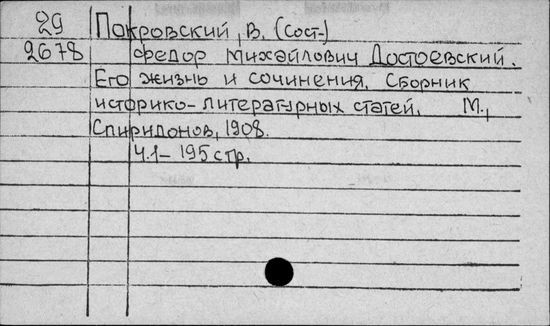 29 Покровский, В. (Сост.)
2678 Федор Михайлович Достоевский.
Его жизнь и сочинения. Сборник
историко-литературных статей. М.,
Спиридонов, 1908.
Ч.1 – 195 стр.